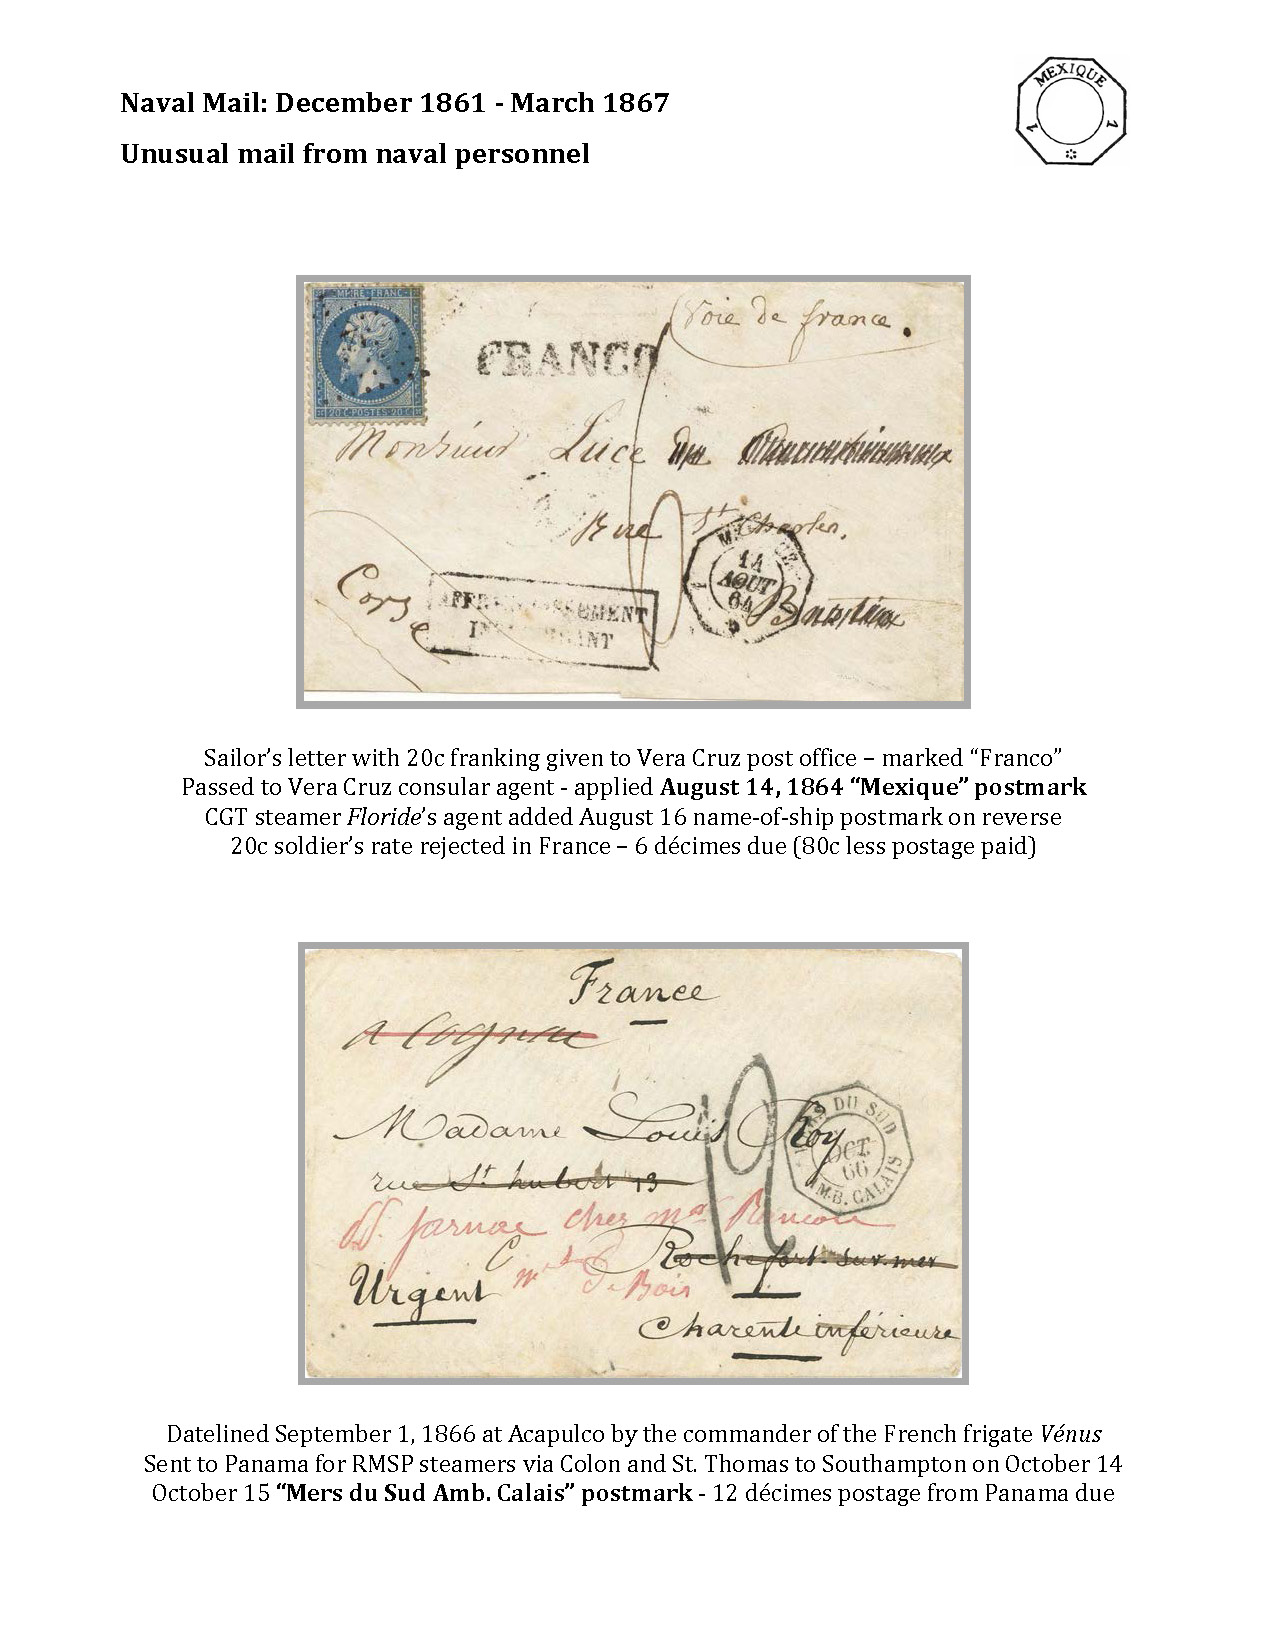 Naval Mail: December 1861 - March 1867
MEXIQUE
1 1
Unusual mail from naval personnel
EMPIRE FRANC
20 C POSTES 20 C
Voie de france.
FRANCO
Monsieur Luce
Rue St Charles,
14
AOUT
64
1
Bastia
Corse
AFFRANCHISSEMENT
INSUFFISANT
Sailor’s letter with 20c franking given to Vera Cruz post office – marked “Franco”
Passed to Vera Cruz consular agent - applied August 14, 1864 “Mexique” postmark
CGT steamer Floride’s agent added August 16 name-of-ship postmark on reverse
20c soldier’s rate rejected in France – 6 décimes due (80c less postage paid)
France
a Cognac
Madame Louis Roy
MERS DU SUD
OCT.
66
AMB. CALAIS
12
rue St hubert 13
Jarnac chez
Rochefort-sur-mer
de Bois
Urgent
Charente inférieure
Datelined September 1, 1866 at Acapulco by the commander of the French frigate Vénus
Sent to Panama for RMSP steamers via Colon and St. Thomas to Southampton on October 14
October 15 “Mers du Sud Amb. Calais” postmark - 12 décimes postage from Panama due